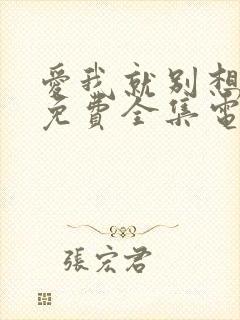 愛我就別想
免費全集電
張宏君